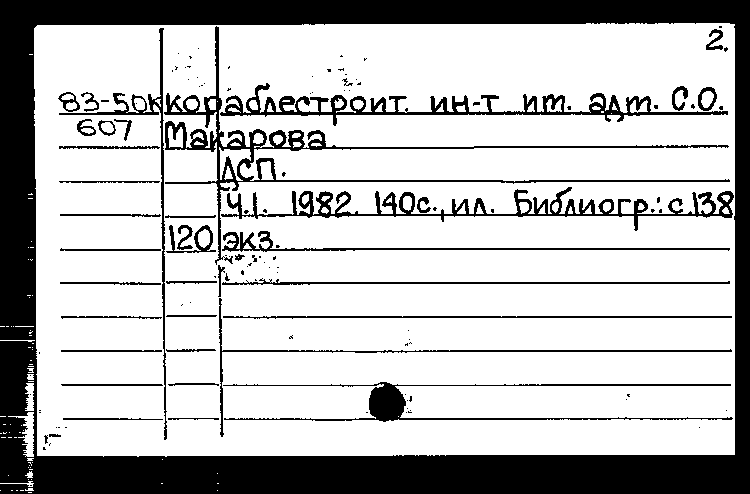 2.
83-50к кораблестроит. ин-т им. адм. С.О.
607 Макарова.
ДСП.
Ч.1. 1982. 140с., ил. Библиогр.: с.138
120 экз.